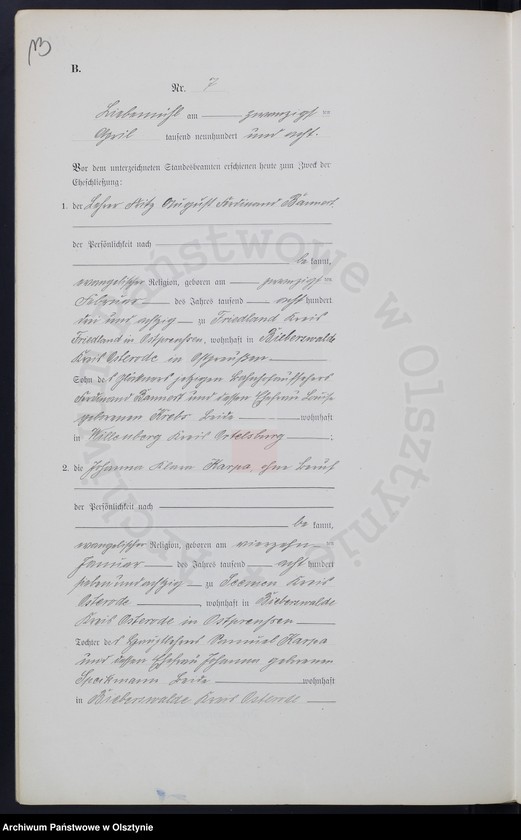 B.
Nr. 7
Liebemühl am zwanzigsten
April tausend neunhundert und acht.
Vor dem unterzeichneten Standesbeamten erschienen heute zum Zweck der
Eheschließung:
1. der Lehrer Fritz August Ferdinand Bannert
der Persönlichkeit nach
be kannt,
evangelischer Religion, geboren am zwanzigsten
Februar des Jahres tausend acht hundert
drei und achtzig zu Friedland Kreis
Friedland in Ostpreußen, wohnhaft in Bieberswalde
Kreis Osterode in Ostpreußen
Sohn des jetzigen
Ferdinand Bannert und dessen Ehefrau Louise
geborenen Krebs beide wohnhaft
in Willenberg Kreis Ortelsburg ;
2. die Johanna Klara Karpa, ohne Beruf
der Persönlichkeit nach
be kannt,
evangelischer Religion, geboren am vierzehnten
Januar des Jahres tausend acht hundert
sieben und achtzig zu Seemen Kreis
Osterode, wohnhaft in Bieberswalde
Kreis Osterode in Ostpreußen
Tochter des Hauptlehrers Samuel Karpa
und dessen Ehefrau Johanna geborenen
beide wohnhaft
in Bieberswalde Kreis Osterode
Archiwum Państwowe w Olsztynie
Archiwum Państwowe w Olsztynie